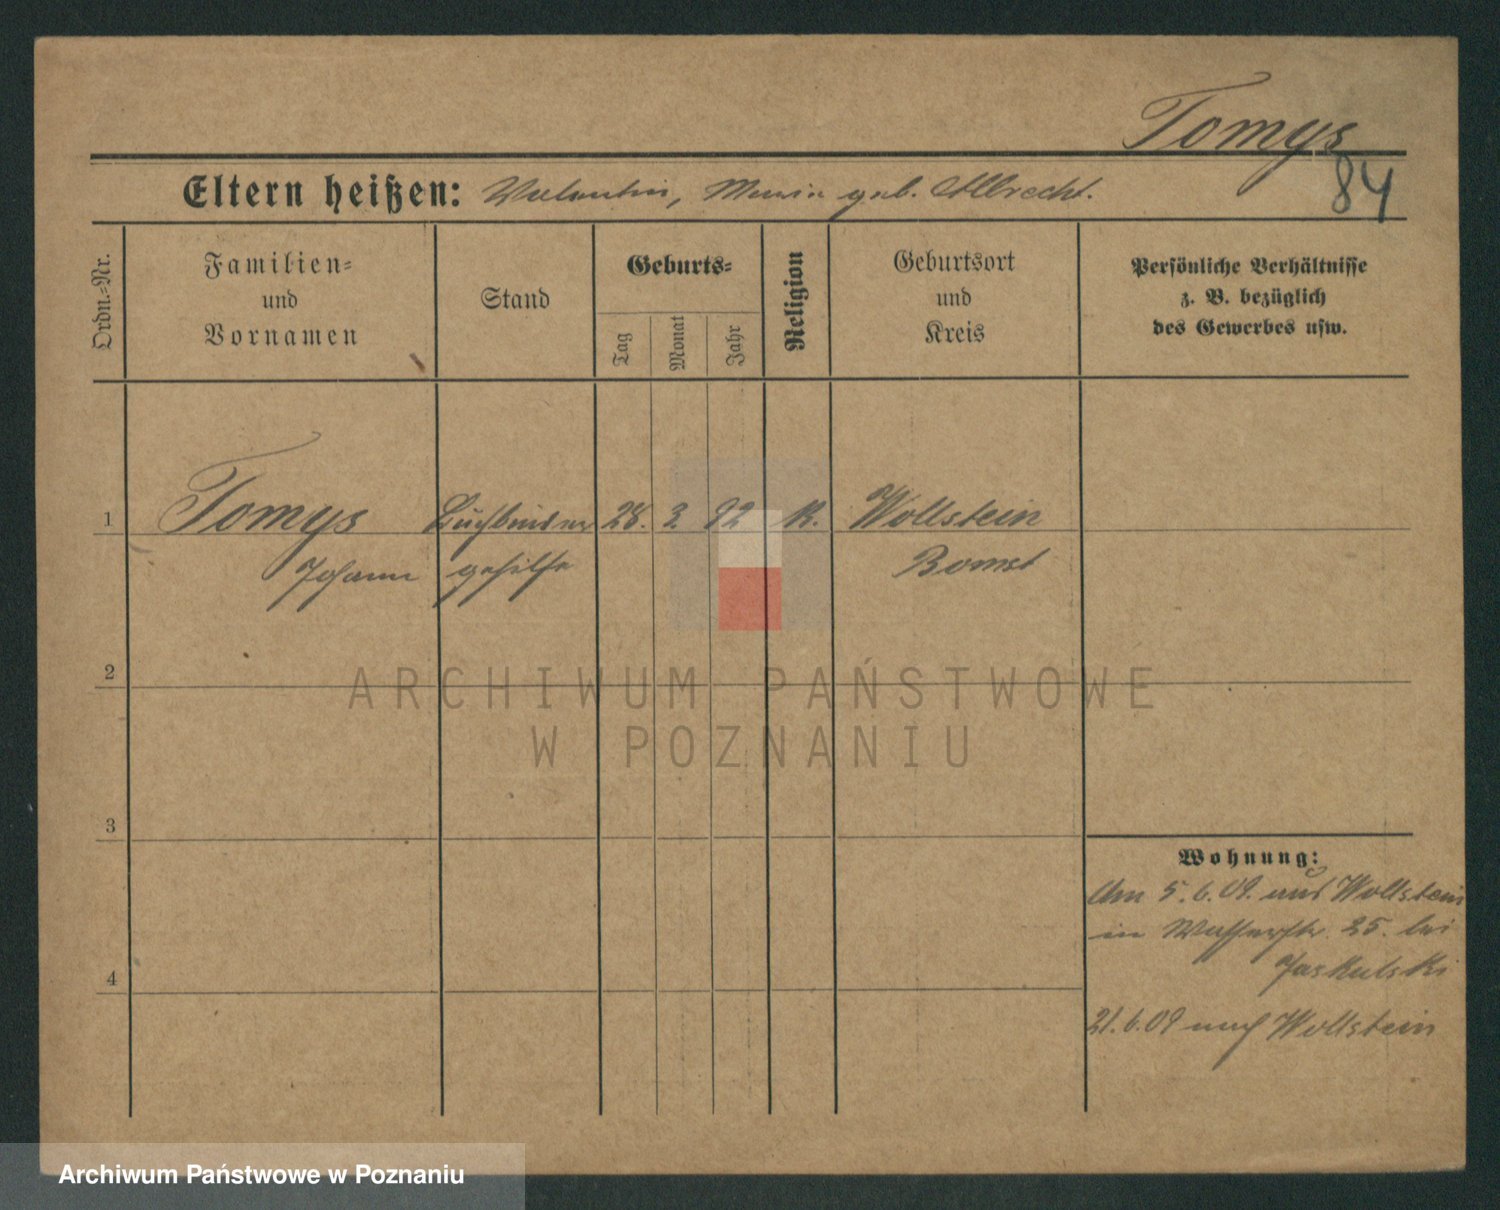 Tomys
84
Eltern heißen: Valentin, Maria geb. Albrecht.
Ordn.=Nr.
Familien=
und
Vornamen
Stand
Geburts=
Tag
Monat
Jahr
Religion
Geburtsort
und
Kreis
Persönliche Verhältnisse
z. B. bezüglich
des Gewerbes usw.
1 Tomys Buchbinder 28. 3. 92 K. Wollstein
Johann gehilfe Bomst
2
3
4
Wohnung:
Am 5.6.09. aus Wollstein
in Wasserstr. 25. bei
Jaskulski
21.6.09 nach Wollstein
ARCHIWUM PAŃSTWOWE
W POZNANIU
Archiwum Państwowe w Poznaniu